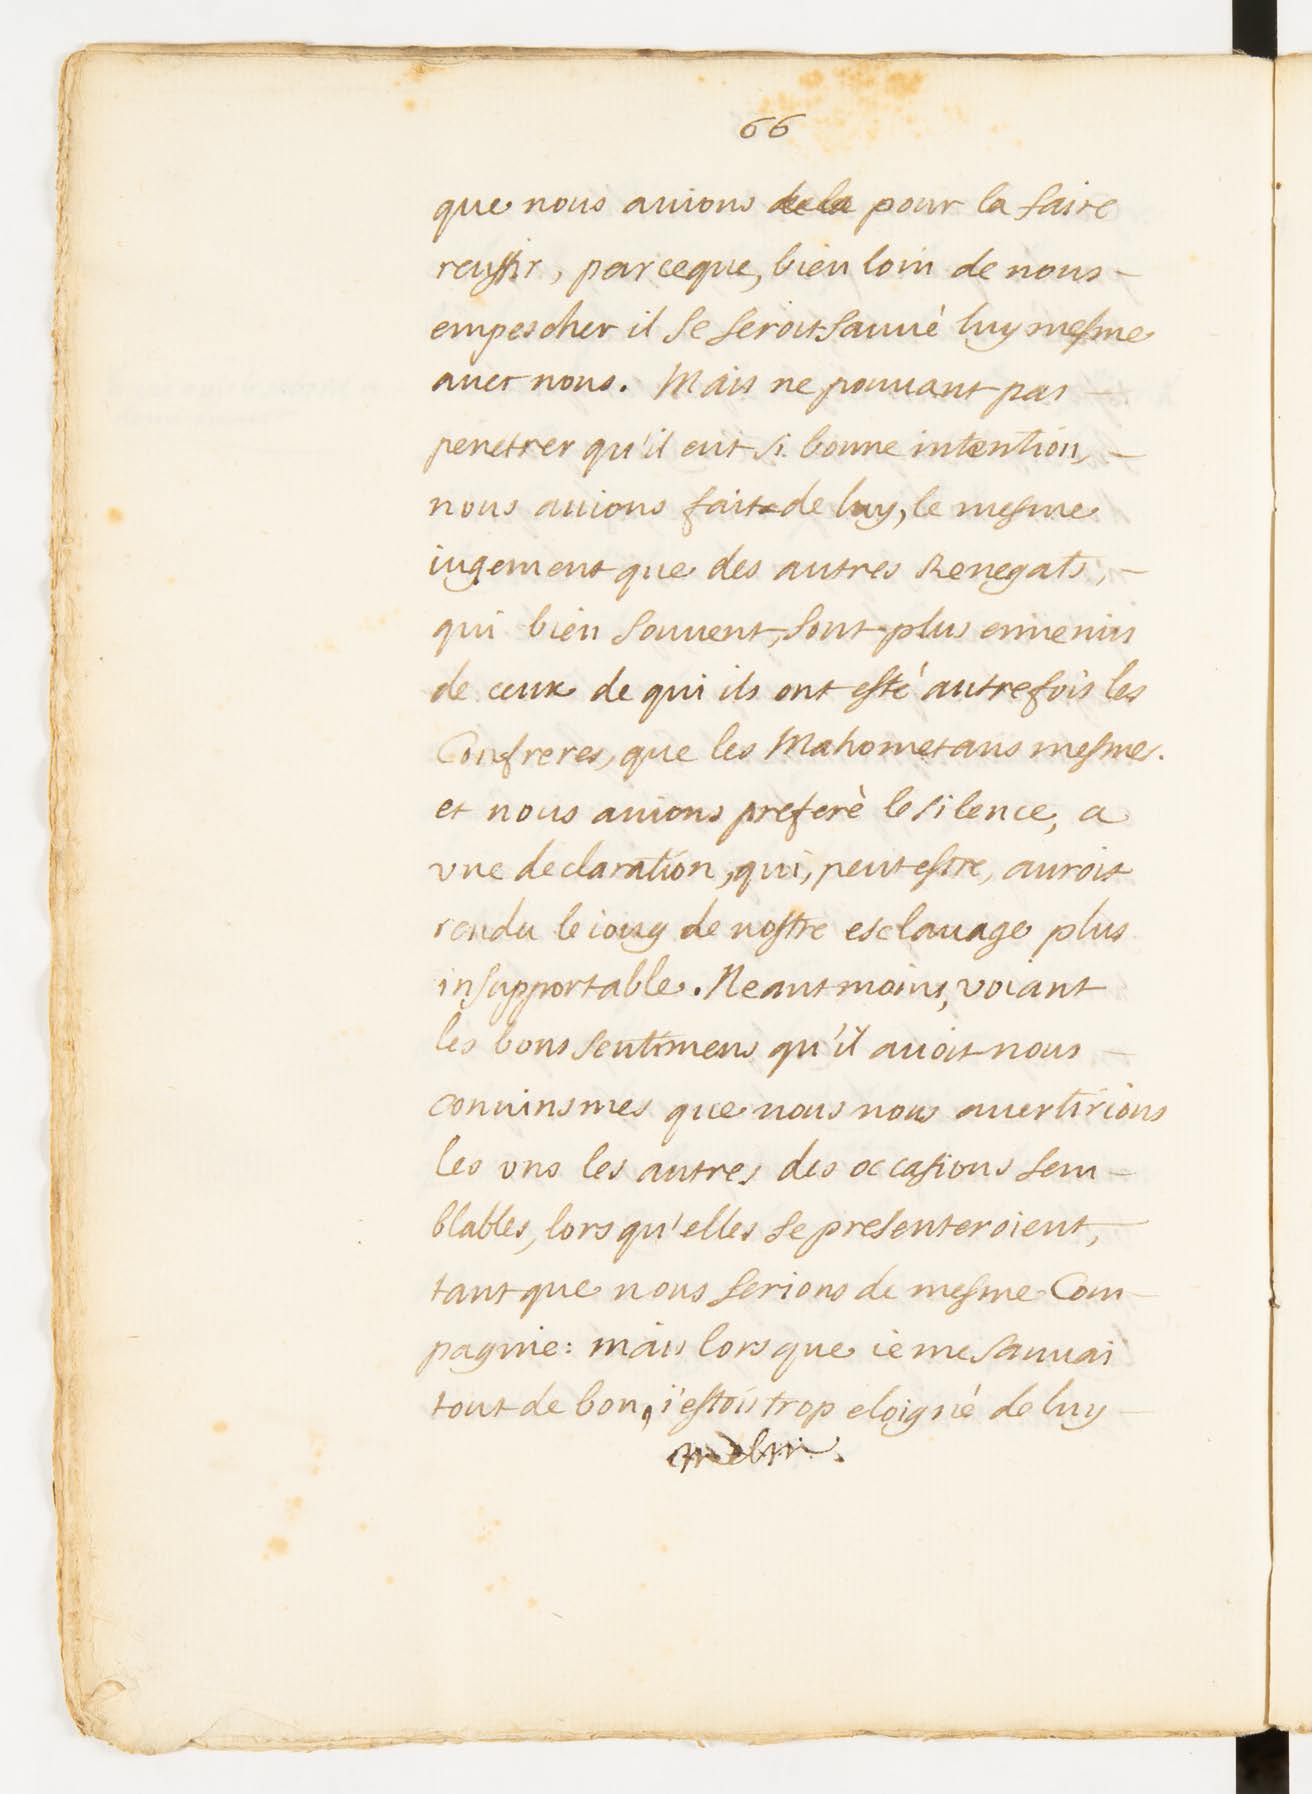 66
que nous auions de la pour la faire
reussir, parceque, bien loin de nous -
empescher il se seroit sauué luy mesme
auec nous. Mais ne pouuant pas -
penetrer qu'il eut si bonne intention, -
nous auions fait de luy, le mesme
iugement que des autres Renegats, -
qui bien souuent, sont plus ennemis
de ceux de qui ils ont esté autrefois les
Confreres, que les Mahometans mesmes.
et nous auions preferè le silence, a
vne declaration, qui, peut estre, auroit
rendu le ioug de nostre esclauage plus
insupportable. Neantmoins, voiant
les bons sentimens qu'il auoit nous -
conuinsmes que nous nous auertirions
les vns les autres des occasions sem -
blables, lors qu'elles se presenteroient, -
tant que nous serions de mesme Com -
pagnie: mais lors que ie me sauuai
tout de bon, i'estois trop eloigné de luy -